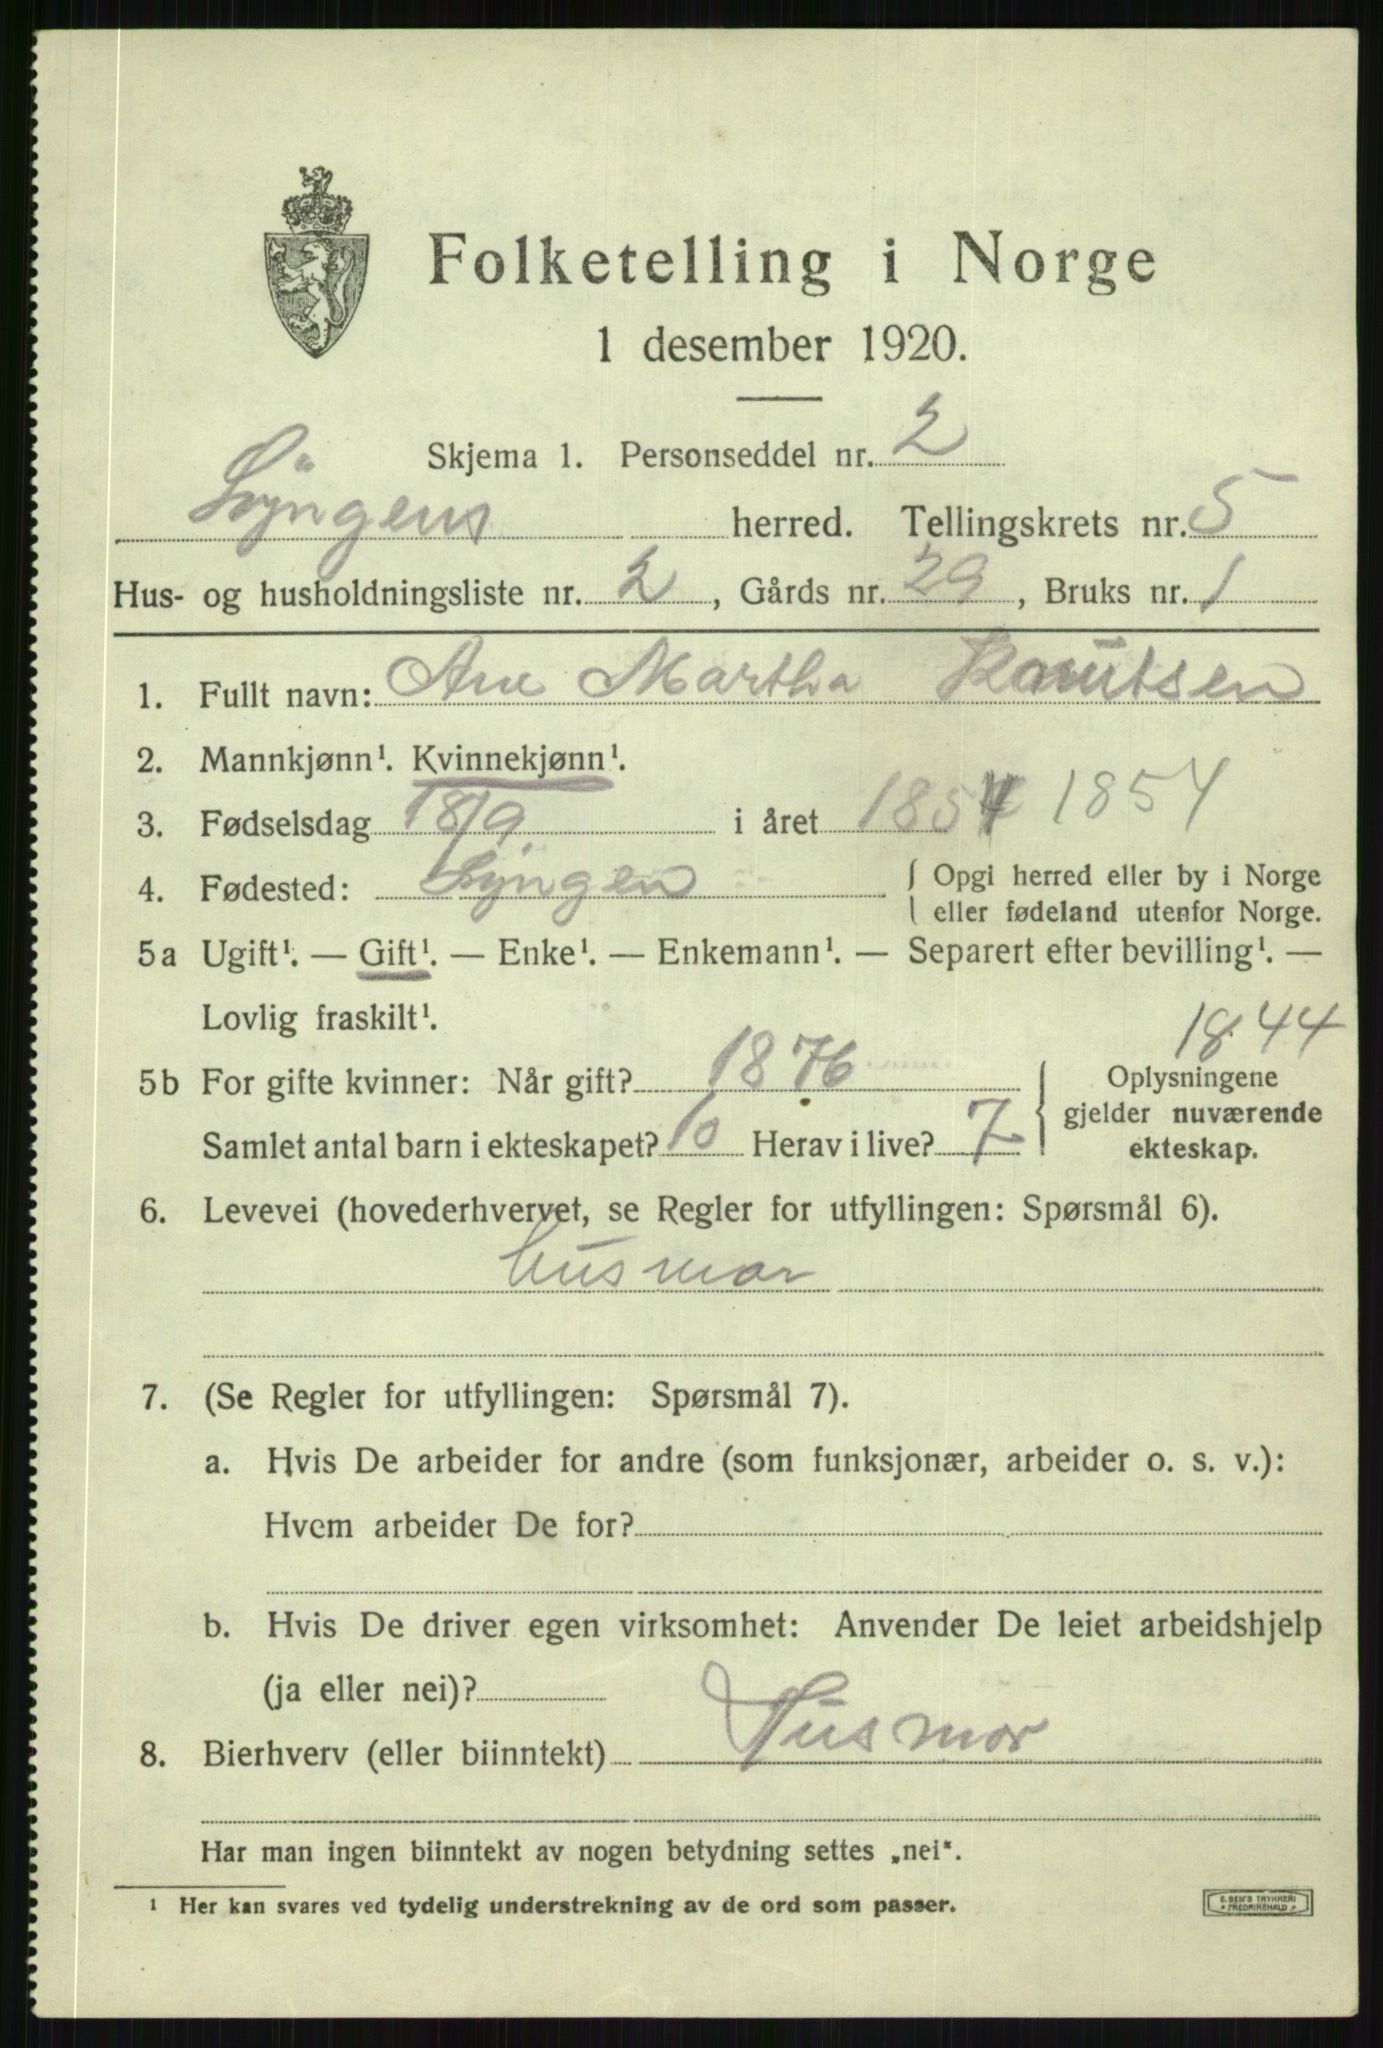 Folketelling i Norge
1 desember 1920.
Skjema 1. Personseddel nr. 2
Lyngens herred. Tellingskrets nr. 5
Hus- og husholdningsliste nr. 2, Gårds nr. 29, Bruks nr. 1
1. Fullt navn: Ane Martha Knutsen
2. Mannkjønn¹. Kvinnekjønn¹.
3. Fødselsdag 18/9 i året 1854 1854
4. Fødested: Lyngen { Opgi herred eller by i Norge
eller fødeland utenfor Norge.
5a Ugift¹. — Gift¹. — Enke¹. — Enkemann¹. — Separert efter bevilling¹. —
Lovlig fraskilt¹.
1844
5b For gifte kvinner: Når gift? 1876
Samlet antal barn i ekteskapet? 10 Herav i live? 7
} Oplysningene
gjelder nuværende
ekteskap.
6. Levevei (hovederhvervet, se Regler for utfyllingen: Spørsmål 6).
husmor
7. (Se Regler for utfyllingen: Spørsmål 7).
a. Hvis De arbeider for andre (som funksjonær, arbeider o. s. v.):
Hvem arbeider De for?
b. Hvis De driver egen virksomhet: Anvender De leiet arbeidshjelp
(ja eller nei)?
8. Bierhverv (eller biinntekt) Husmor
Har man ingen biinntekt av nogen betydning settes „nei“.
¹ Her kan svares ved tydelig understrekning av de ord som passer.
E. SEM'S TRYKKERI
FREDRIKSHALD